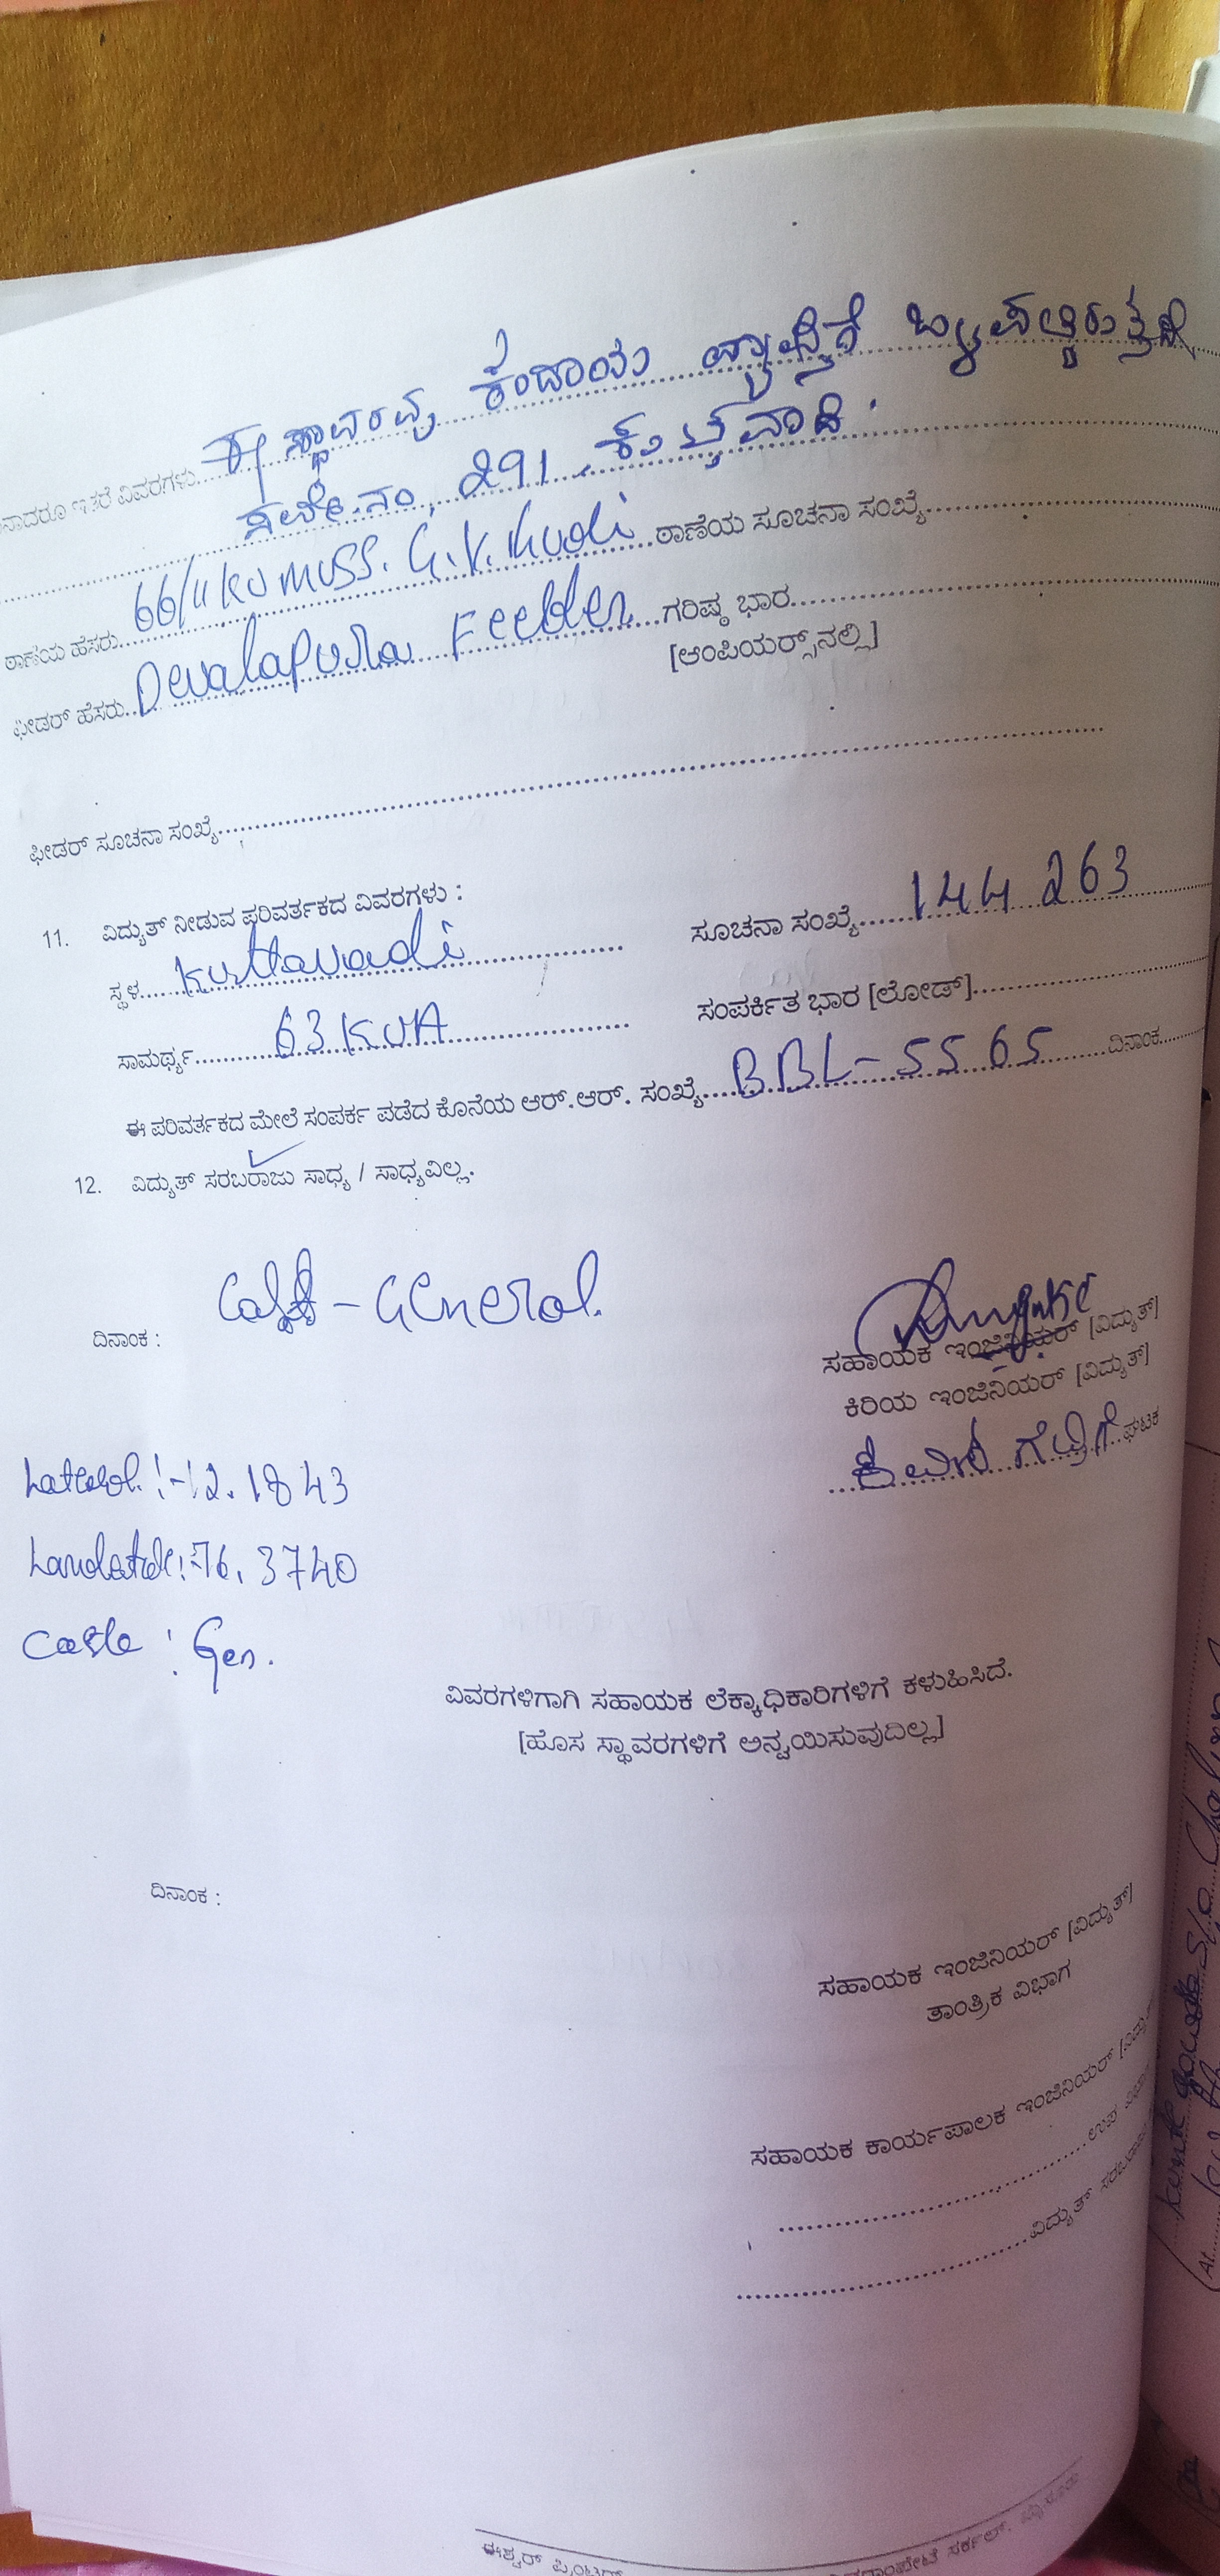 ಇತರೆ ವಿವರಗಳು.....ಈ ಸ್ಥಾವರವು ಕಂದಾಯ ವ್ಯಾಪ್ತಿಗೆ ಒಳಪಟ್ಟಿರುತ್ತದೆ
ಸರ್ವೇ.ನಂ, 291, ಕುತ್ತವಾಡಿ.
ಠಾಣೆಯ ಹೆಸರು.....66/11KV MUSS. G.V.Kudi.....ಠಾಣೆಯ ಸೂಚನಾ ಸಂಖ್ಯೆ.....
ಫೀಡರ್ ಹೆಸರು.....Devalapura Feeder.....ಗರಿಷ್ಠ ಭಾರ.....
[ಆಂಪಿಯರ್ಸ್‌ನಲ್ಲಿ]
ಫೀಡರ್ ಸೂಚನಾ ಸಂಖ್ಯೆ.....
11. ವಿದ್ಯುತ್ ನೀಡುವ ಪರಿವರ್ತಕದ ವಿವರಗಳು :
ಸ್ಥಳ.....Kuttavadi..... ಸೂಚನಾ ಸಂಖ್ಯೆ.....144263
ಸಾಮರ್ಥ್ಯ.....63 KVA..... ಸಂಪರ್ಕಿತ ಭಾರ [ಲೋಡ್].....
ಈ ಪರಿವರ್ತಕದ ಮೇಲೆ ಸಂಪರ್ಕ ಪಡೆದ ಕೊನೆಯ ಆರ್.ಆರ್. ಸಂಖ್ಯೆ.....BBL-5565.....ದಿನಾಂಕ.....
12. ವಿದ್ಯುತ್ ಸರಬರಾಜು ಸಾಧ್ಯ / ಸಾಧ್ಯವಿಲ್ಲ.
- General.
ದಿನಾಂಕ :
ಸಹಾಯಕ ಇಂಜಿನಿಯರ್ [ವಿದ್ಯುತ್]
ಕಿರಿಯ ಇಂಜಿನಿಯರ್ [ವಿದ್ಯುತ್]
.....ಘಟಕ
:-12.1843
:-76.3740
Caste : Gen.
ವಿವರಗಳಿಗಾಗಿ ಸಹಾಯಕ ಲೆಕ್ಕಾಧಿಕಾರಿಗಳಿಗೆ ಕಳುಹಿಸಿದೆ.
[ಹೊಸ ಸ್ಥಾವರಗಳಿಗೆ ಅನ್ವಯಿಸುವುದಿಲ್ಲ]
ದಿನಾಂಕ :
ಸಹಾಯಕ ಇಂಜಿನಿಯರ್ [ವಿದ್ಯುತ್]
ತಾಂತ್ರಿಕ ವಿಭಾಗ
ಸಹಾಯಕ ಕಾರ್ಯಪಾಲಕ ಇಂಜಿನಿಯರ್
.....ಉಪ
.....ವಿದ್ಯುತ್
ಈಶ್ವರ್ ಪ್ರಿಂಟರ್ಸ್ ಸರ್ಕಲ್,